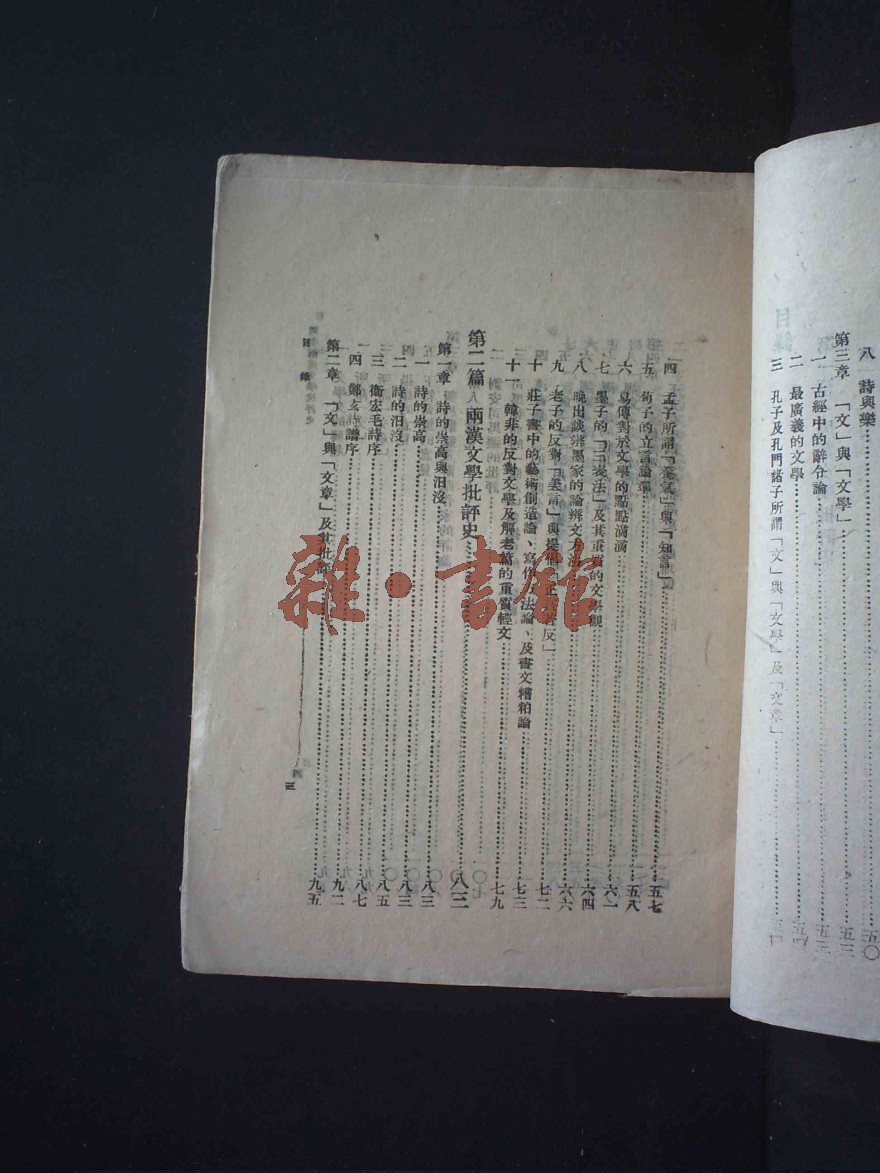 八 詩與樂……五〇
第三章 「文」與「文學」……五三
一 古經中的辭令論……五三
二 最廣義的文學
三 孔子及孔門諸子所謂「文」與「文學」及「文章」
四 孟子所謂「養氣」與「知言」……五七
五 荀子的立言論準……五八
六 易傳對於文學的點點滴滴……六一
七 墨子的「三表法」及其重質的文學觀……六四
八 晚出談辯墨家的論辨文方法……六六
九 老子的反對「美言」與提倡「正言若反」……七二
十 莊子書中的藝術創造論、寫作方法論、及書文糟粕論……七三
十一 韓非的反對文學及解老篇的重質輕文……七九
第二篇 兩漢文學批評史……八三
第一章 詩的崇高與汨沒……八三
一 詩的崇高……八三
二 詩的汨沒……八五
三 衞宏毛詩序……八七
四 鄭玄詩譜序……九二
第二章 「文」與「文章」及其批評……九五
目錄
三
雜·書館